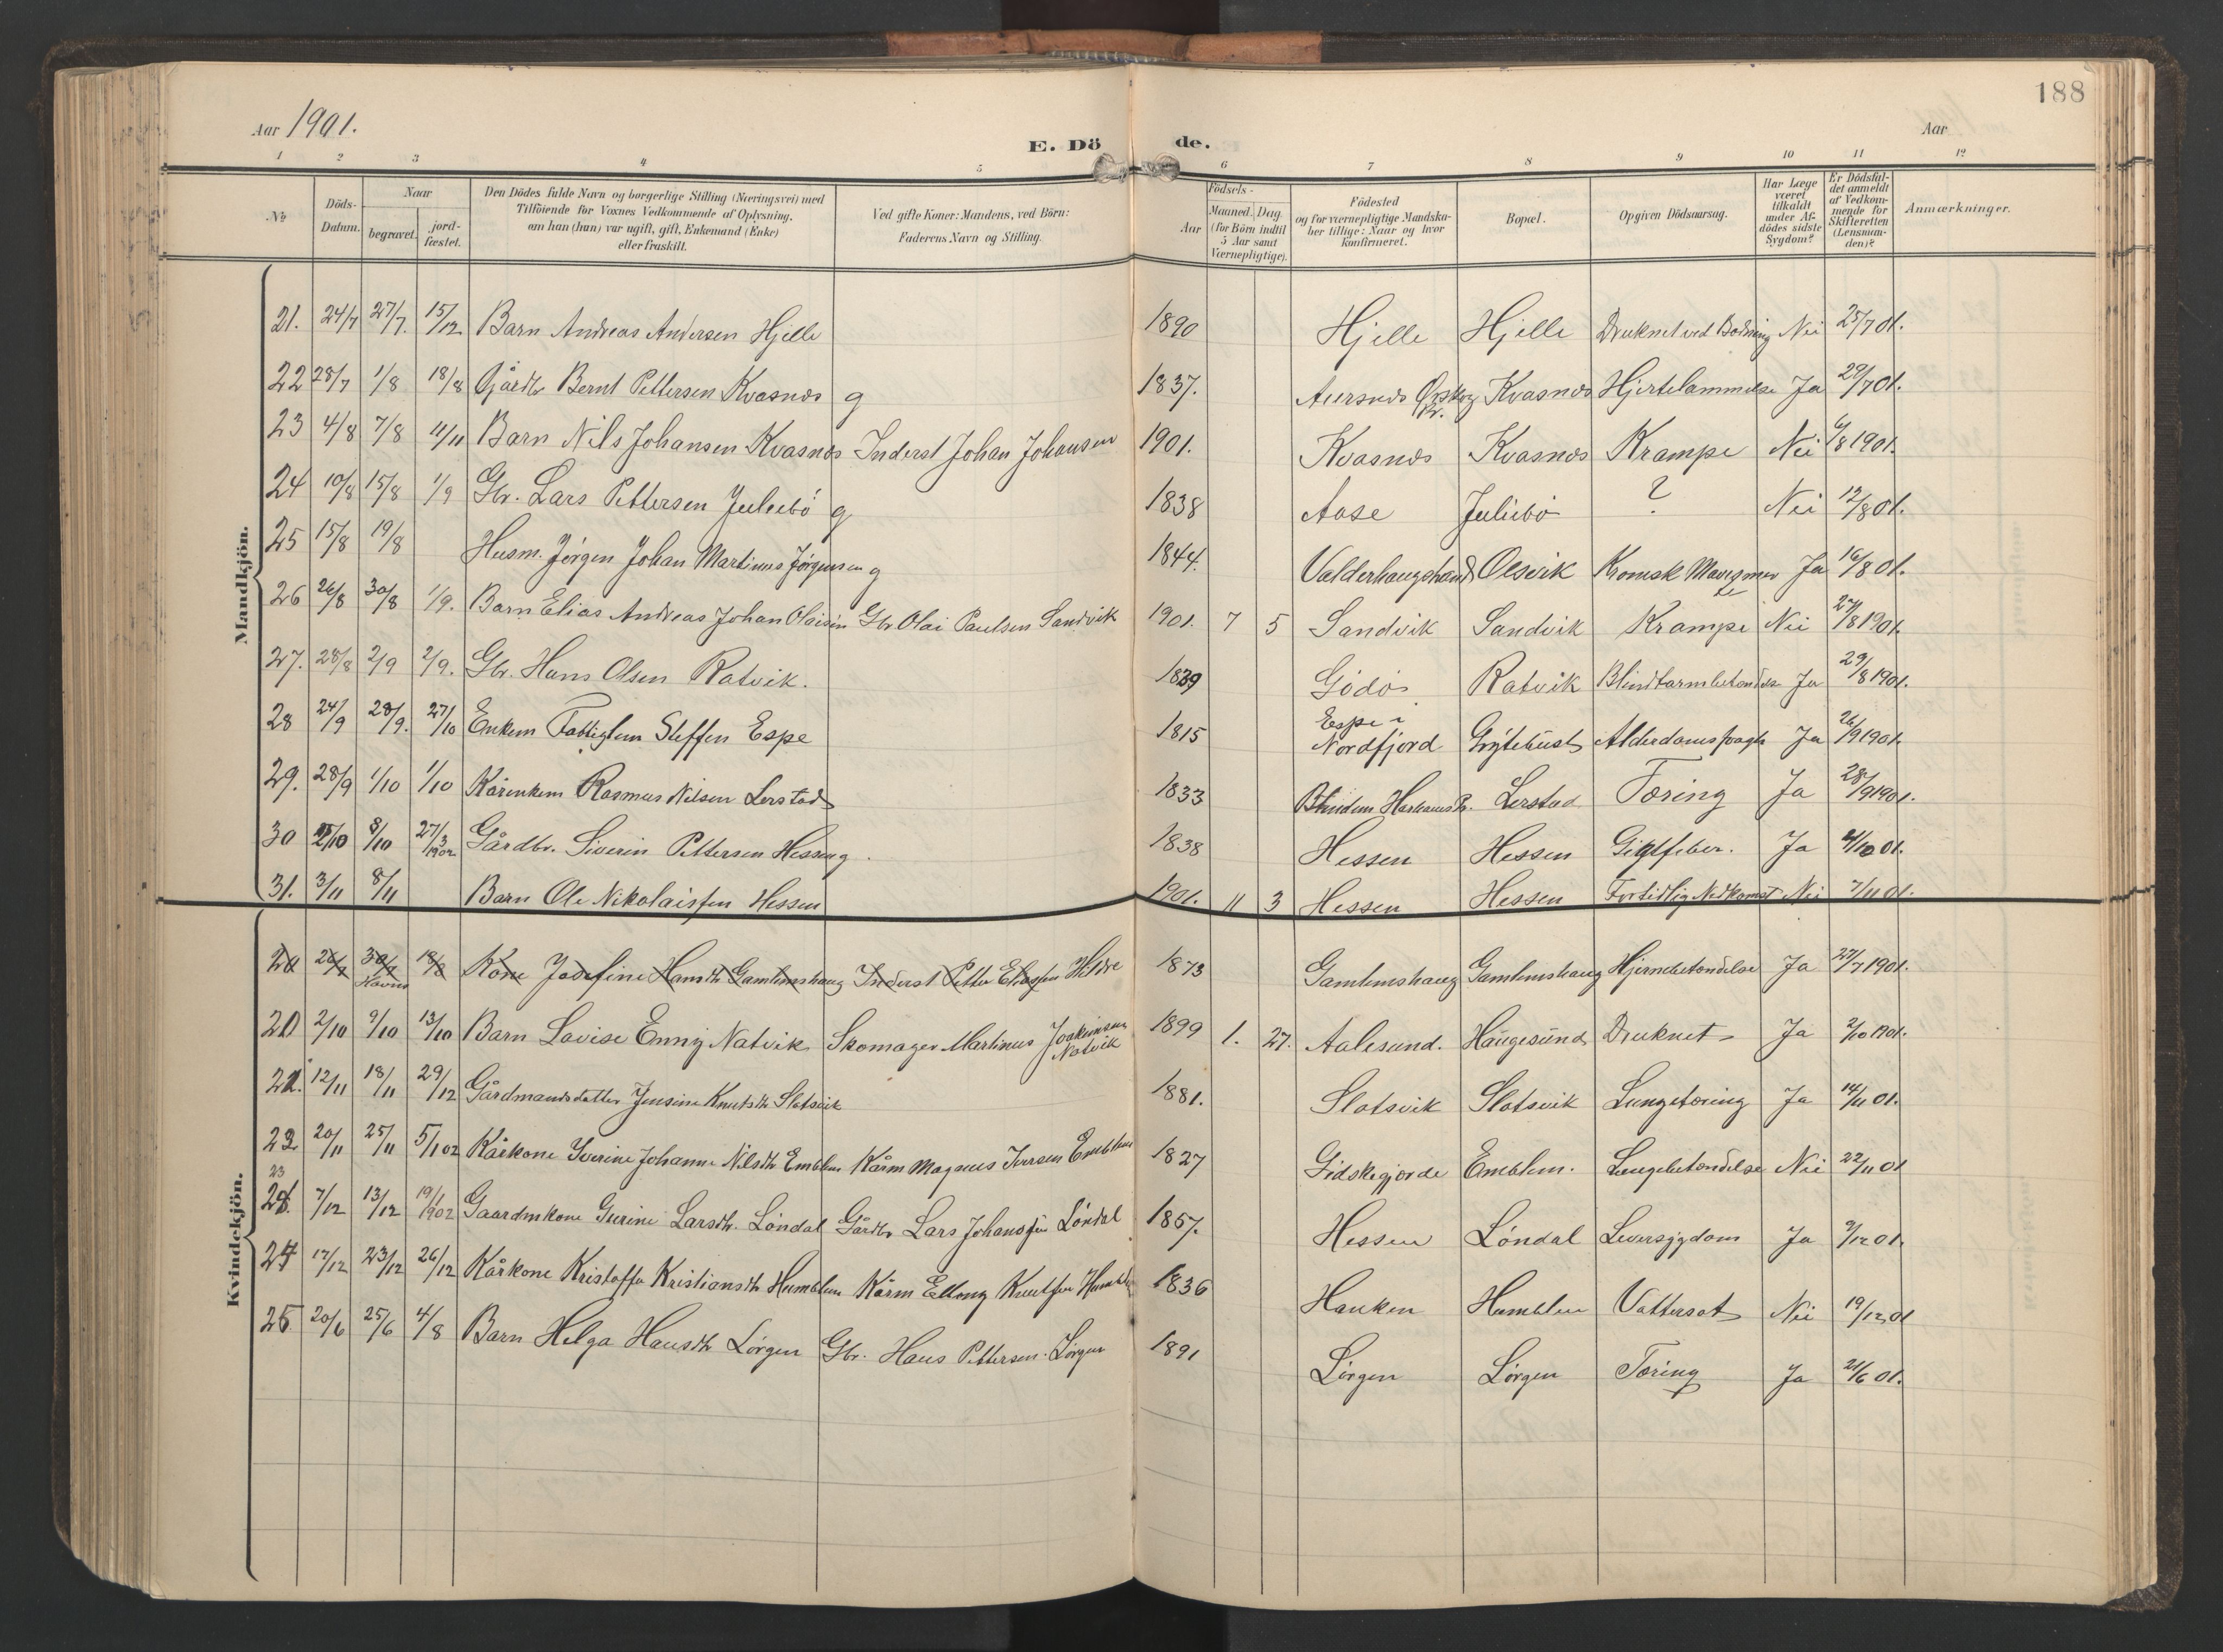 188
Aar 1901. E. Dö de. Aar
1 2 3 4 5 6 7 8 9 10 11 12
No
Döds-Datum.
Naar
begravet.
jord-fæstet.
Den Dödes fulde Navn og borgerlige Stilling (Næringsvei) med
Tilföiende for Voxnes Vedkommende af Oplysning,
om han (hun) var ugift, gift, Enkemand (Enke)
eller fraskilt.
Ved gifte Koner: Mandens, ved Börn:
Faderens Navn og Stilling.
Födsels-
Aar
Maaned. Dag.
(for Börn indtil
5 Aar samt
Værnepligtige).
Födested
og for værnepligtige Mandska-
ber tillige: Naar og hvor
konfirmeret.
Bopæl.
Opgiven Dödsaarsag.
Har Læge
været
tilkaldt
under Af-
dödes sidste
Sygdom?
Er Dödsfal-
det anmeldt
af Vedkom-
mende for
Skifteretten
(Lensman-
den)?
Anmærkninger.
Mandkjön.
21. 24/7 27/7. 15/12 Barn Andreas Andersen Hjelle 1890 Hjelle Hjelle Druknet ved Badning Nei 25/7 01.
22 28/7 1/8 18/8 Gårdbr Bernt Pettersen Kvasnes g 1837. Aursnes Ørskog Pr. Kvasnes Hjertelammelse Ja 29/7 01.
23 4/8 7/8 11/11 Barn Nils Johansen Kvasnes Inderst Johan Johansen 1901. Kvasnes Kvasnes Krampe Nei 6/8 1901.
24 10/8 15/8 1/9 Gbr. Lars Pettersen Juliebö g 1838 Aase Juliebö ? Nei 12/8 01.
25 15/8 19/8 Husm. Jörgen Johan Martinus Jörgensen g 1844. Valderhaugstrand Olsvik Kronisk Mavesmerte Ja 16/8 01.
26 26/8 30/8 1/9. Barn Elias Andreas Johan Olaisen Gbr Olai Paulsen Sandvik 1901. 7 5 Sandvik Sandvik Krampe Nei 27/8 1901.
27. 28/8 2/9 2/9. Gbr. Hans Olsen Ratvik. 1839 Gödö Ratvik Blindtarmbetændelse Ja 29/8 1901.
28 24/9 28/9. 27/10 Enkem Fattiglem Steffen Espe 1815 Espe i Nordfjord Grytehust Alderdomssvagh Ja 26/9 1901.
29. 28/9 1/10 1/10 Kårenkem Rasmus Nilsen Lerstad 1833 Blindem Harhams Pr. Lerstad Tæring Ja 28/9 1901.
30 2/10 8/10 27/3 1902 Gårdbr. Siverin Pettersen Hessen g. 1838 Hessen Hessen Gigtfeber. Ja 4/10 01.
31. 3/11 8/11 Barn Ole Nikolaissen Hessen 1901. 11 3 Hessen Hessen Fortidlig Nedkomst Nei 7/11 01.
Kvindekjön.
20 26/7 30/7 18/8 Kone Josefine Hansdtr Gamlemshaug Inderst Petter Eliassen Hildre 1873 Gamlemshaug Gamlemshaug Hjernebetændelse Ja 27/7 1901.
20 2/10 9/10 13/10 Barn Lovise Enny Natvik Skomager Martinus Joakimsen Natvik 1899 1. 27. Aalesund. Haugesund Druknet Ja 2/10 1901.
21. 12/11 18/11 29/12 Gårdmandsdatter Jensine Knutsdtr Slotsvik 1881. Slotsvik Slotsvik Lungetæring Ja 14/11 01.
22 20/11 25/11 5/1 02 Kårkone Iverine Johanne Nilsdtr Emblem Kårm Magnus Iversen Emblem 1827 Gidskegjerde Emblem. Lungebetændelse Nei 22/11 01
23 7/12 13/12 19/1 1902 Gaardmkone Gurine Larsdtr. Löndal Gårdbr Lars Johansen Löndal 1857. Hessen Löndal Leversygdom Ja 9/12 01.
24 17/12 23/12 26/12 Kårkone Kristoffa Kristiansdtr Humblen Kårm Elling Knutsen Humblen 1836 Hanken Humblen Vattersot Nei 19/12 01
25 20/6 25/6 4/8 Barn Helga Hansdtr Lörgen Gbr. Hans Pettersen Lörgen 1891 Lörgen Lörgen Tæring Ja 21/6 01.